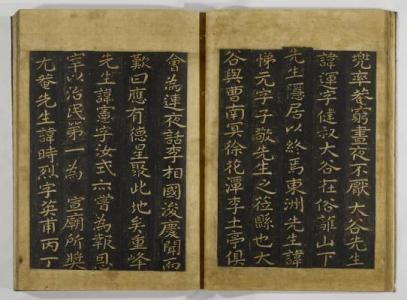 兜率菴窮晝夜不厭大谷先生
諱運字健叔大谷在俗離山下
先生隱居以終焉東洲先生諱
悌元字子敬先生之莅縣也大
谷與曹南冥徐花潭李土亭俱
會為連夜話李相國浚慶聞而
歎曰應有德星聚此地矣重峰
先生諱憲字汝式亦嘗為報恩
宰以治民第一為 宣廟所奬
尤菴先生諱時烈字英甫丙丁